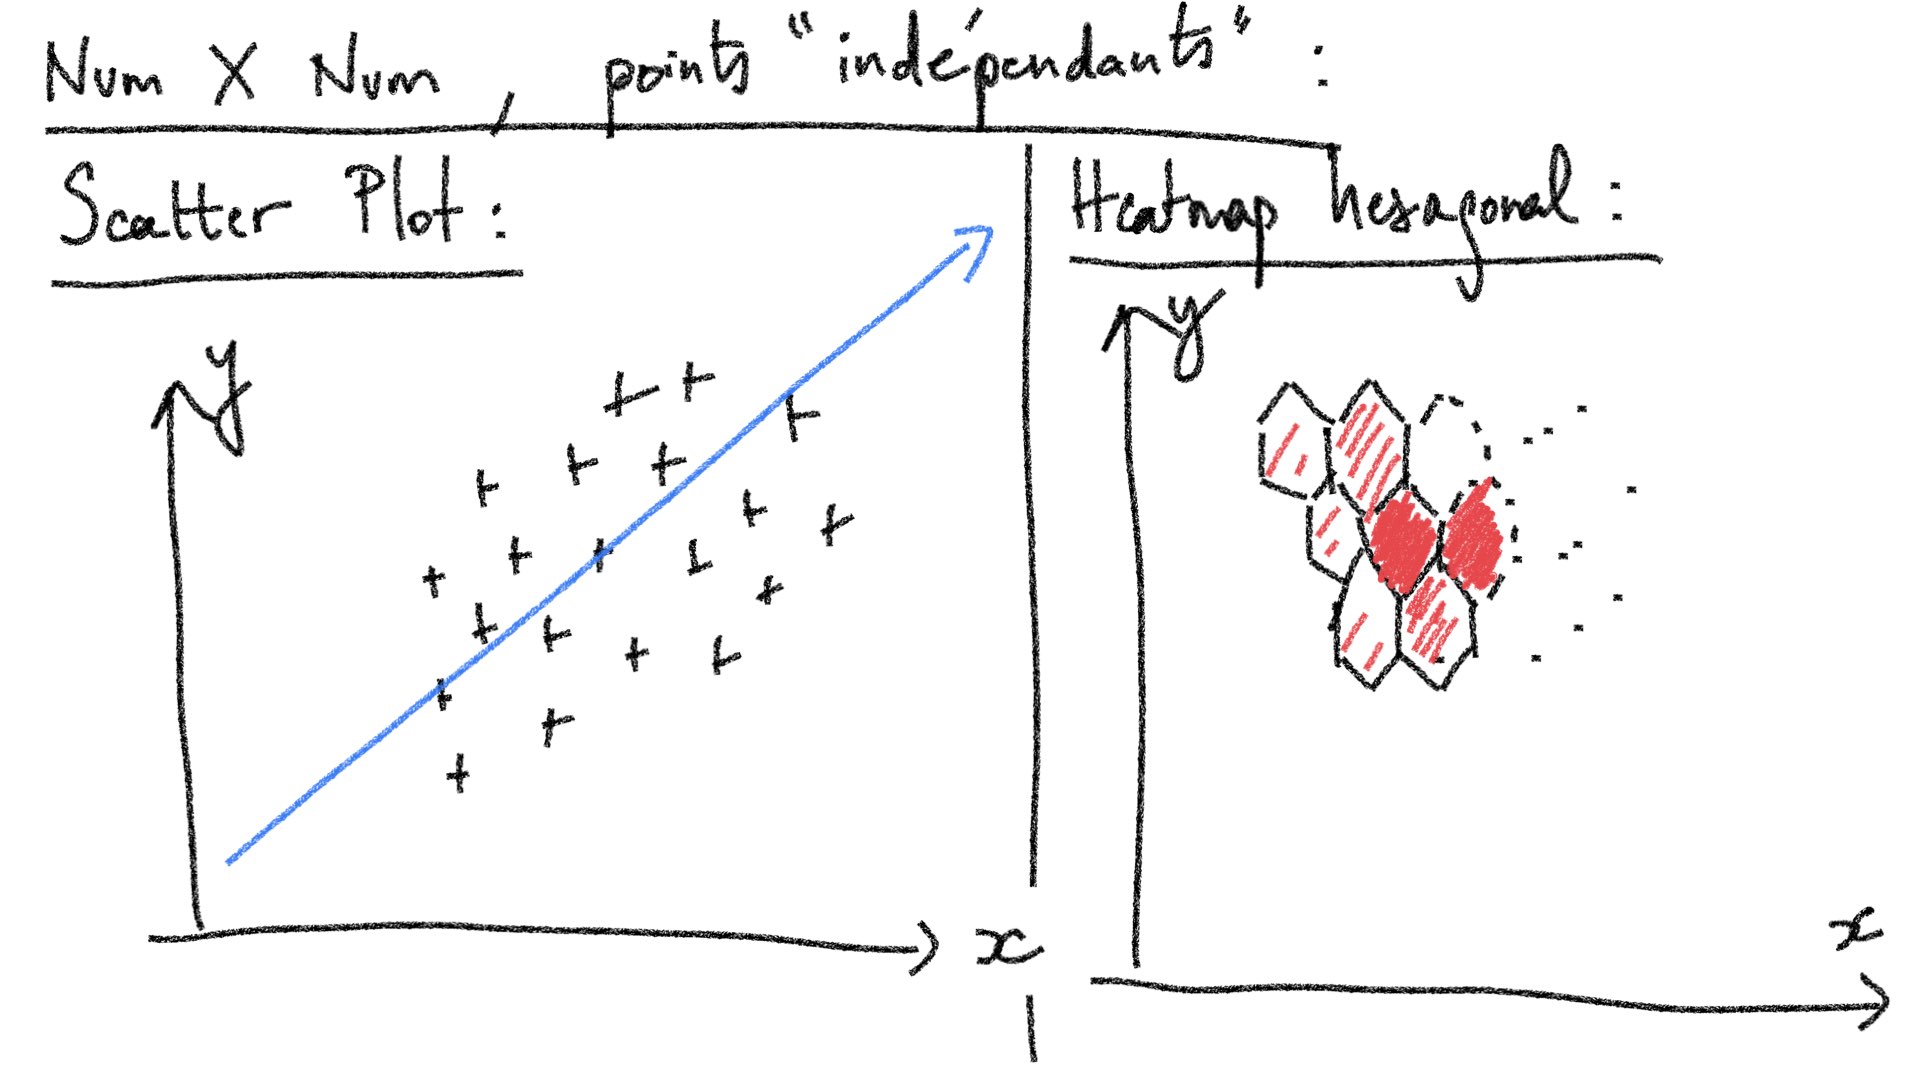 Num X Num, points "indépendants" :
Scatter Plot :
Heatmap hexagonal :
y
x
y
x